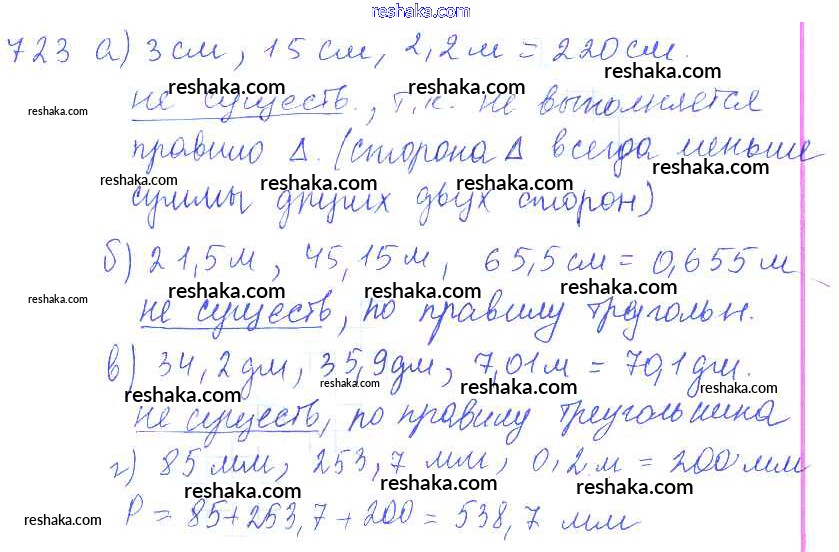 reshaka.com
723 а) 3 см, 15 см, 2,2 м = 220 см.
reshaka.com reshaka.com reshaka.com
reshaka.com
не существ., т.к. не выполняется
reshaka.com reshaka.com
правило Δ. (сторона Δ всегда меньше
reshaka.com
reshaka.com reshaka.com reshaka.com
суммы других двух сторон)
reshaka.com reshaka.com
б) 21,5 м, 45,15 м, 65,5 см = 0,655 м
reshaka.com reshaka.com reshaka.com reshaka.com
не существ, по правилу треугольн.
reshaka.com reshaka.com reshaka.com
в) 34,2 дм, 35,9 дм, 7,01 м = 70,1 дм.
reshaka.com reshaka.com reshaka.com reshaka.com
не существ, по правилу треугольника
reshaka.com reshaka.com reshaka.com
г) 85 мм, 253,7 мм, 0,2 м = 200 мм
reshaka.com reshaka.com reshaka.com
P = 85+253,7+200 = 538,7 мм
reshaka.com
reshaka.com reshaka.com
reshaka.com